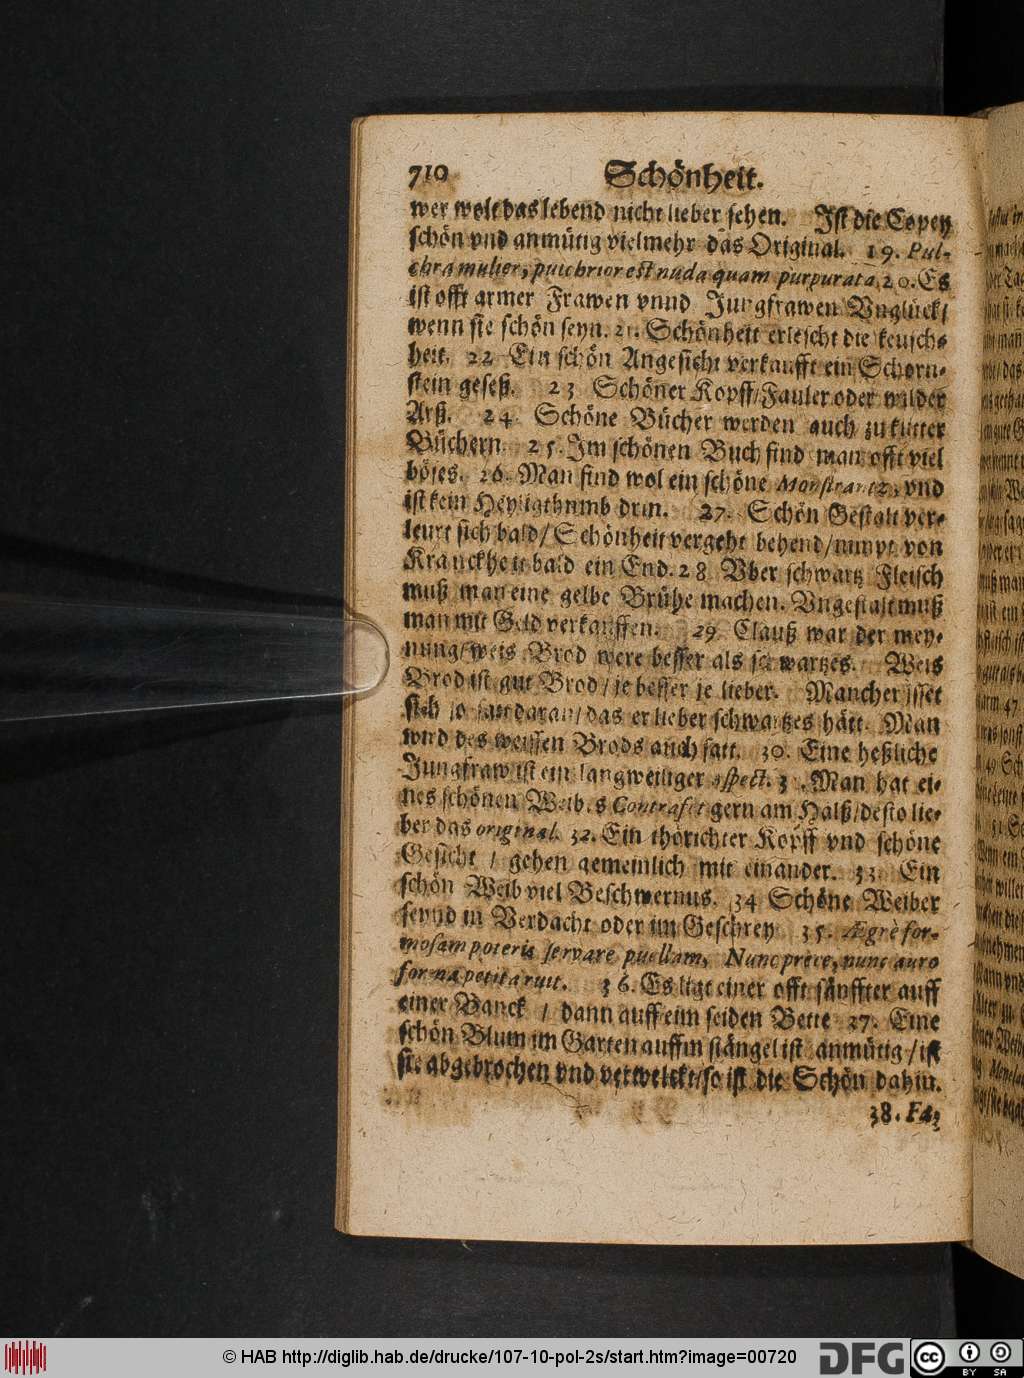 710 Schönheit.
wer wolt das lebend nicht lieber sehen. Ist die Copey
schön vnd anmütig vielmehr das Original. 19. Pul-
chra mulier, pulchrior est nuda quam purpurata. 20. Es
ist offt armer Frawen vnnd Jungfrawen Vnglück/
wenn sie schön seyn. 21. Schönheit erlescht die keusch-
heit. 22 Ein schön Angesicht verkaufft ein Schorn-
stein geseß. 23 Schöner Kopff/Fauler oder wilder
Arß. 24. Schöne Bücher werden auch zu kutter
Büchern. 25. Im schönen Buch find man offt viel
böses. 26. Man find wol ein schöne Monstrantz, vnd
ist kein Heyligthumb drin. 27. Schön Gestalt ver-
leurt sich bald/Schönheit vergeht behend/nimpt von
Kranckheit bald ein End. 28 Vber schwartz Fleisch
muß man eine gelbe Brühe machen. Vngestalt muß
man mit Geld verkauffen. 29. Clauß war der mey-
nung/weis Brod were besser als schwartzes. Weis
Brod ist gut Brod/je besser je lieber. Mancher isset
sich so satt daran/das er lieber schwartzes hätt. Man
wird des weissen Brods auch satt. 30. Eine heßliche
Jungfraw ist ein langweiliger aspect. 3 . Man hat ei-
nes schönen Weibes Contrafet gern am Halß/desto lie-
ber das original. 32. Ein thörichter Kopff vnd schöne
Gesicht / gehen gemeinlich mit einander. 33. Ein
schön Weib viel Beschwernus. 34 Schöne Weiber
seynd in Verdacht oder im Geschrey. 35. Ægrè for-
mosam poteris servare puellam, Nunc prece, nunc auro
forma petita ruit. 36. Es ligt einer offt sänffter auff
einer Banck / dann auff eim seiden Bette 37. Eine
schön Blum im Garten auffm stängel ist anmütig/ist
sie abgebrochen vnd verwelckt/so ist die Schön dahin.
38. Fa-
© HAB http://diglib.hab.de/drucke/107-10-pol-2s/start.htm?image=00720
DFG
cc BY SA